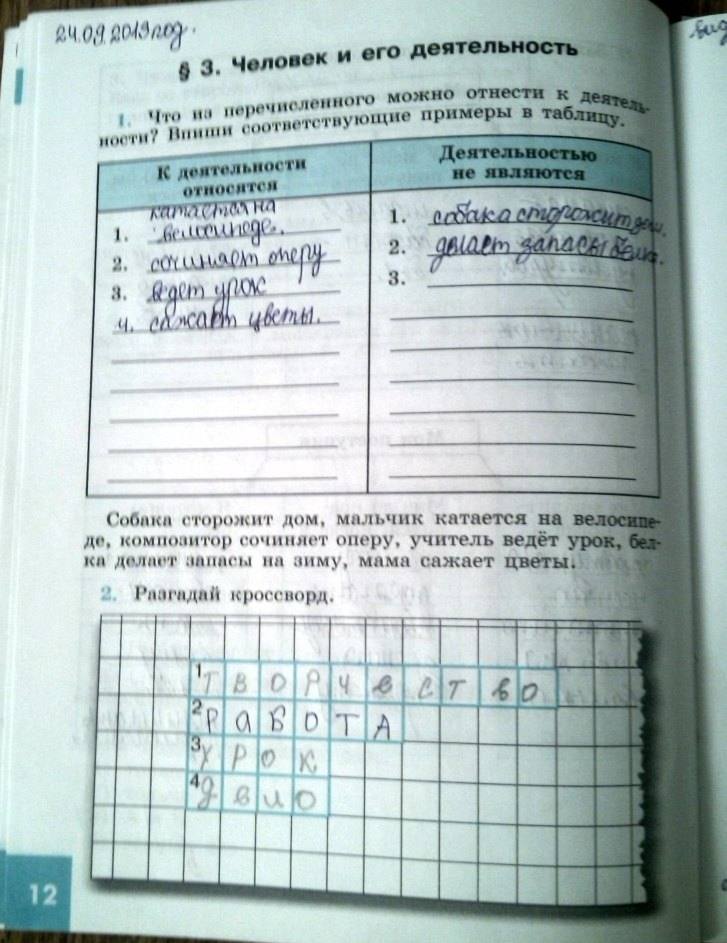 24.09.2019год.
§ 3. Человек и его деятельность
1. Что из перечисленного можно отнести к деятель-
ности? Впиши соответствующие примеры в таблицу.
К деятельности
относятся
катается на
1. велосипеде.
2. сочиняет оперу
3. ведет урок
4. сажает цветы.
Деятельностью
не являются
1. собака сторожит дом.
2. делает запасы белка.
3.
Собака сторожит дом, мальчик катается на велосипе-
де, композитор сочиняет оперу, учитель ведёт урок, бел-
ка делает запасы на зиму, мама сажает цветы.
2. Разгадай кроссворд.
1 ТВОРЧЕСТВО
2 РАБОТА
3 УРОК
4 Дело
12